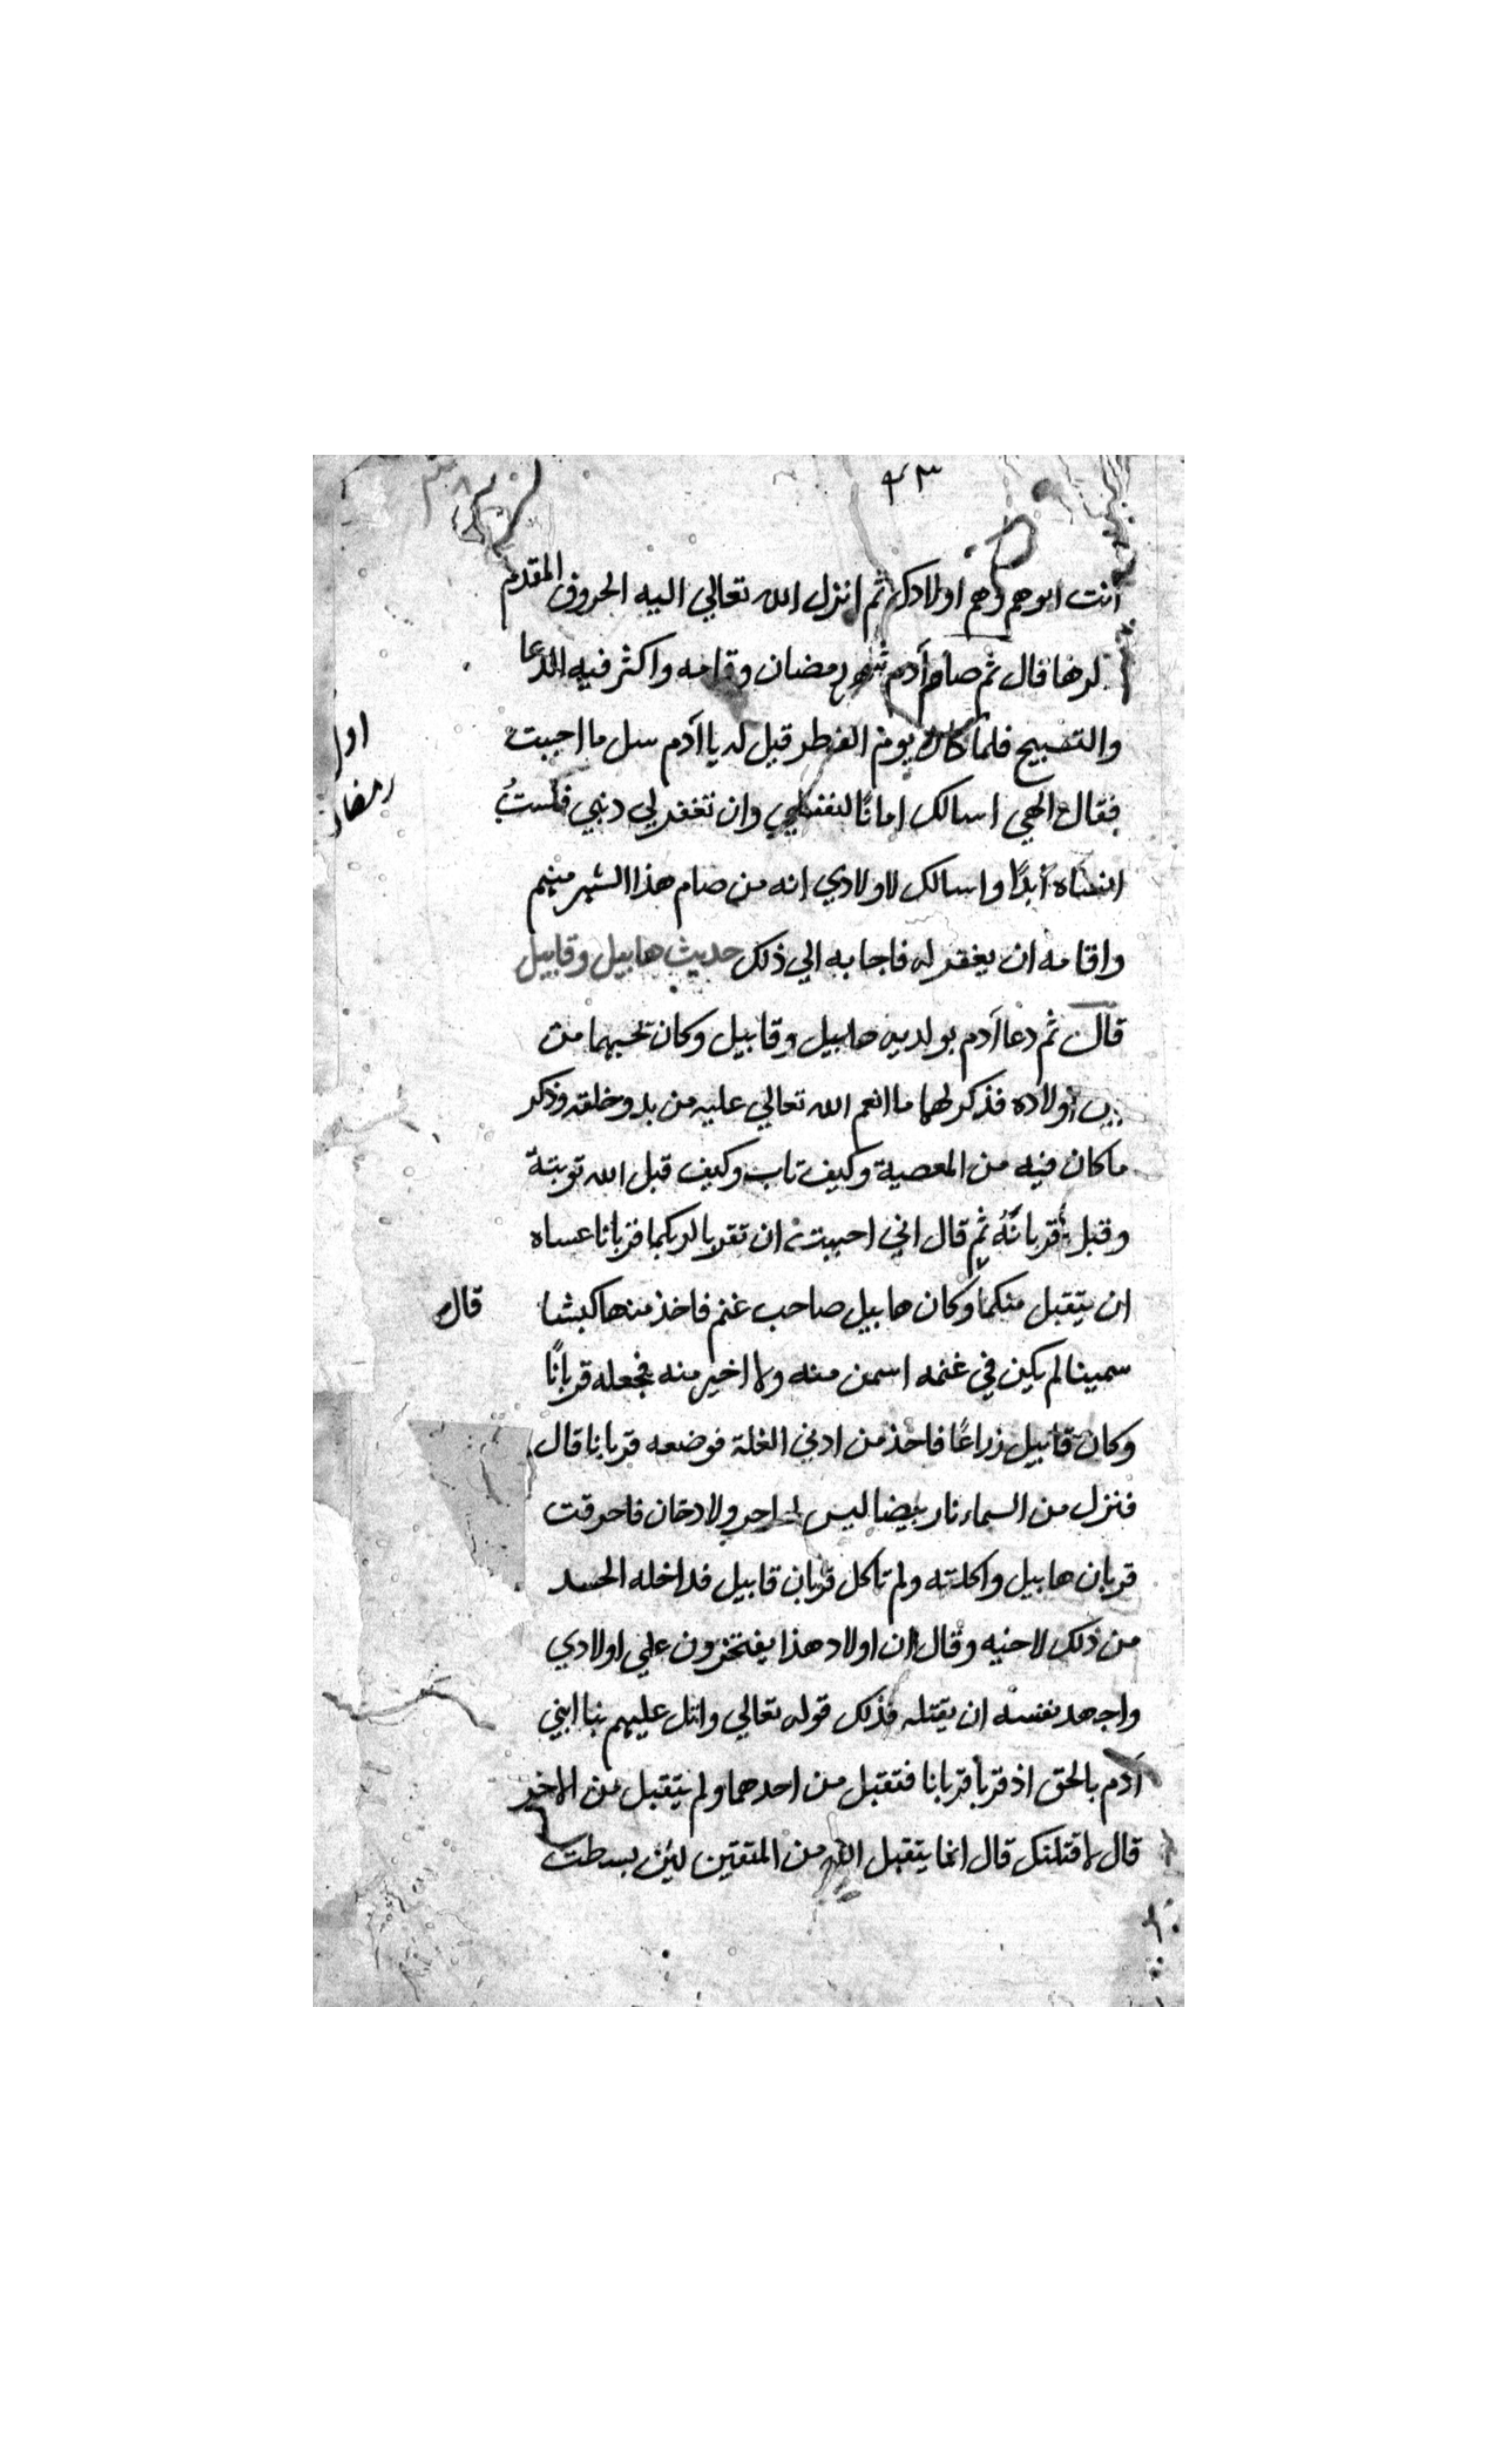 ٤٣
انت ابوهم وهم اولادك ثم انزل الله تعالي اليه الحروف المقدم
لرها قال ثم صام آدم شهر رمضان وقامه واكثر فيه الدعا
والتسبيح فلما كان يوم الفطر قيل له يا آدم سل ما احببت
فقال الهي اسالك امانًا لنفسي وان تغفر لي دنبي فلستُ
انساه ابدًا واسالك لاولادي انه من صام هذا الشهر منهم
واقامه ان يغفر له فاجابه الي ذلك حديث هابيل وقابيل
قال ثم دعا آدم بولديه هابيل وقابيل وكان تحبهما من
بين اولاده فذكر لهما ما انعم الله تعالي عليه من بدو خلقه وذكر
ماكان فيه من المعصية وكيف تاب وكيف قبل الله توبتة
وقبل قربانَهُ ثم قال اني احببت ان تقربا لربكما قربانا عساه
ان يتقبل منكما وكان هابيل صاحب غنم فاخذ منها كبشا
سمينا لم يكين في غنمه اسمن منه ولا اخير منه فجعله قربانًا
وكان قابيل زراعًا فاخذ من ادني الغلة فوضعه قربانا قال
فنزل من السماء نار بيضا ليس لها حر ولا دخان فاحرقت
قربان هابيل واكلته ولم تاكل قربان قابيل فداخله الحسد
من ذلك لاخيه وقال ان اولاد هذا يفتخرون علي اولادي
واجهد نفسه ان يقتله فذلك قوله تعالي واتل عليهم نبا ابني
آدم بالحق اذ قربا قربانا فتقبل من احدهما ولم يتقبل من الاخر
قال لاقتلنك قال انما يتقبل الله من المتقين لين بسطت
اول
رمضان
قال